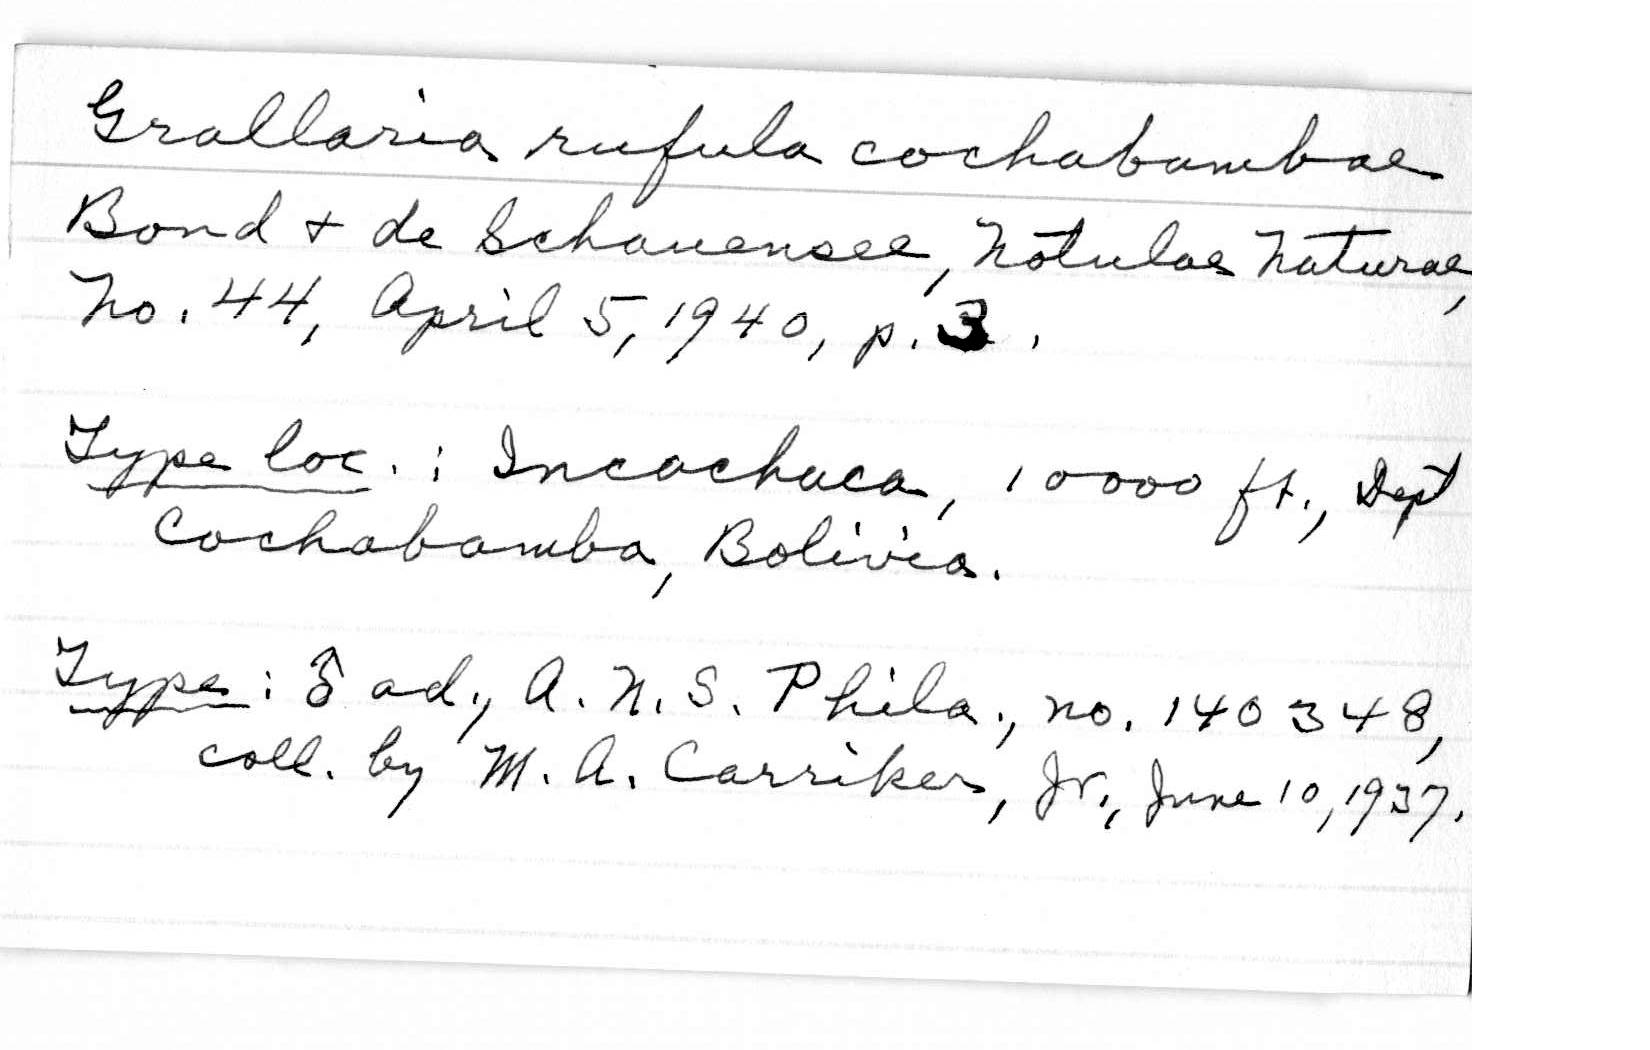 Grallaria rufula cochabambae
Bond + de Schauensee, Notulae Naturae,
No. 44, April 5, 1940, p. 3.
Type loc.: Incachaca, 10000 ft., Dept
Cochabamba, Bolivia.
Type: ♂ ad., A.N.S. Phila., no. 140348,
coll. by M. A. Carriker, Jr., June 10, 1937.